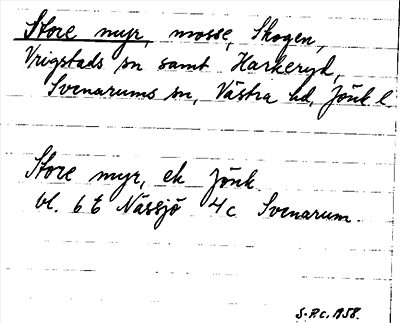 Store myr, mosse, Skogen,
Vrigstads sn samt Harkeryd,
Svenarums sn, Västra hd, Jönk l.
Store myr, ek Jönk.
bl. 6 E Nässjö 4c Svenarum.
S-P.C. 1958.